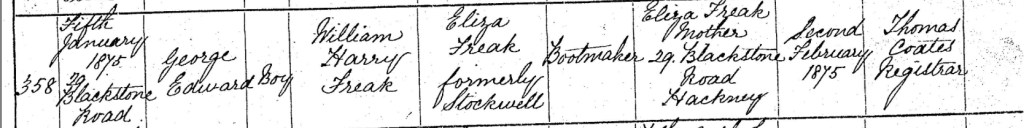 358
Fifth
January
1875
29
Blackstone
Road
George
Edward
Boy
William
Harry
Freak
Eliza
Freak
formerly
Stockwell
Bootmaker
Eliza Freak
Mother
29 Blackstone
Road
Hackney
Second
February
1875
Thomas
Coates
Registrar